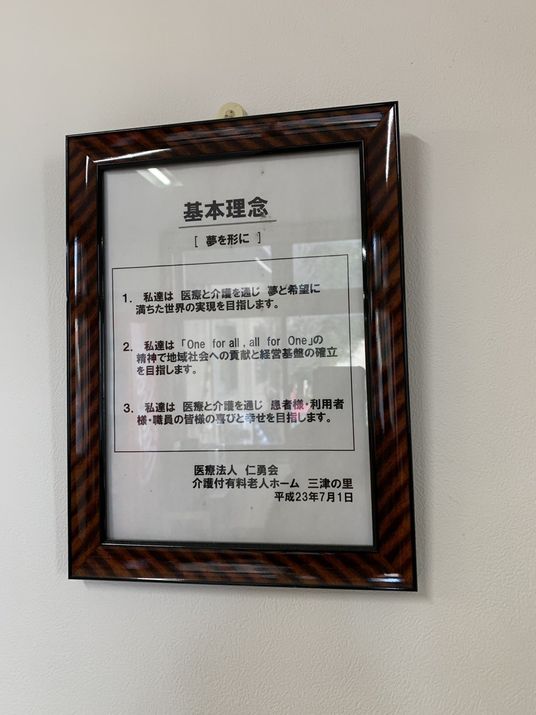 基本理念
[ 夢を形に ]
1. 私達は 医療と介護を通じ 夢と希望に
満ちた世界の実現を目指します。
2. 私達は「One for all , all for One」の
精神で地域社会への貢献と経営基盤の確立
を目指します。
3. 私達は 医療と介護を通じ 患者様・利用者
様・職員の皆様の喜びと幸せを目指します。
医療法人 仁勇会
介護付有料老人ホーム 三津の里
平成23年7月1日